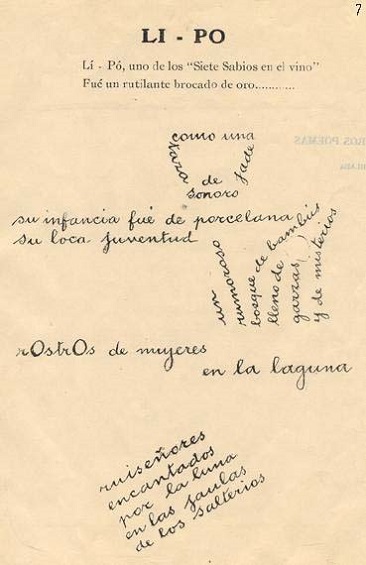 7
LI - PO
Lí - Pó, uno de los "Siete Sabios en el vino"
Fué un rutilante brocado de oro...........
como una
taza
de
sonoro
jade
su infancia fué de porcelana
su loca juventud
un
rumoroso
bosque de bambús
lleno de
garzas
y de misterios
rOstrOs de mujeres
en la laguna
ruiseñores
encantados
por la luna
en las jaulas
de los salterios